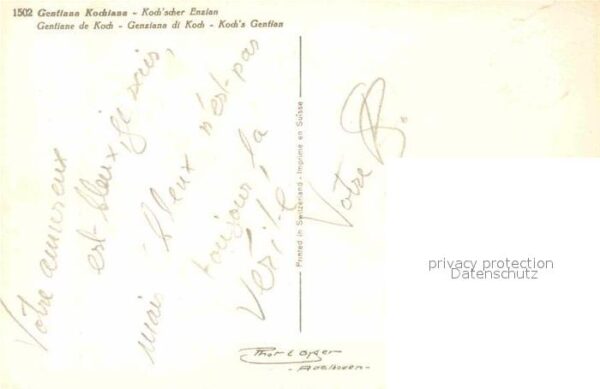 1502 Gentiana Kochiana - Koch'scher Enzian
Gentiane de Koch - Genziana di Koch - Koch's Gentian
Votre amureux
est bleux, je sais,
mais bleux n'est pas
toujour la
Verité,
Votre
Printed in Switzerland - Imprimé en Suisse
privacy protection
Datenschutz
- Adelboden -